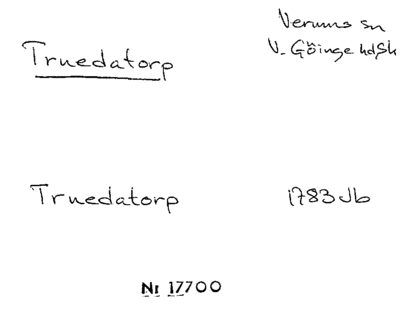 Truedatorp
Verums sn
V. Göinge hd Sk
Truedatorp
1783 Jb
Nr 17700